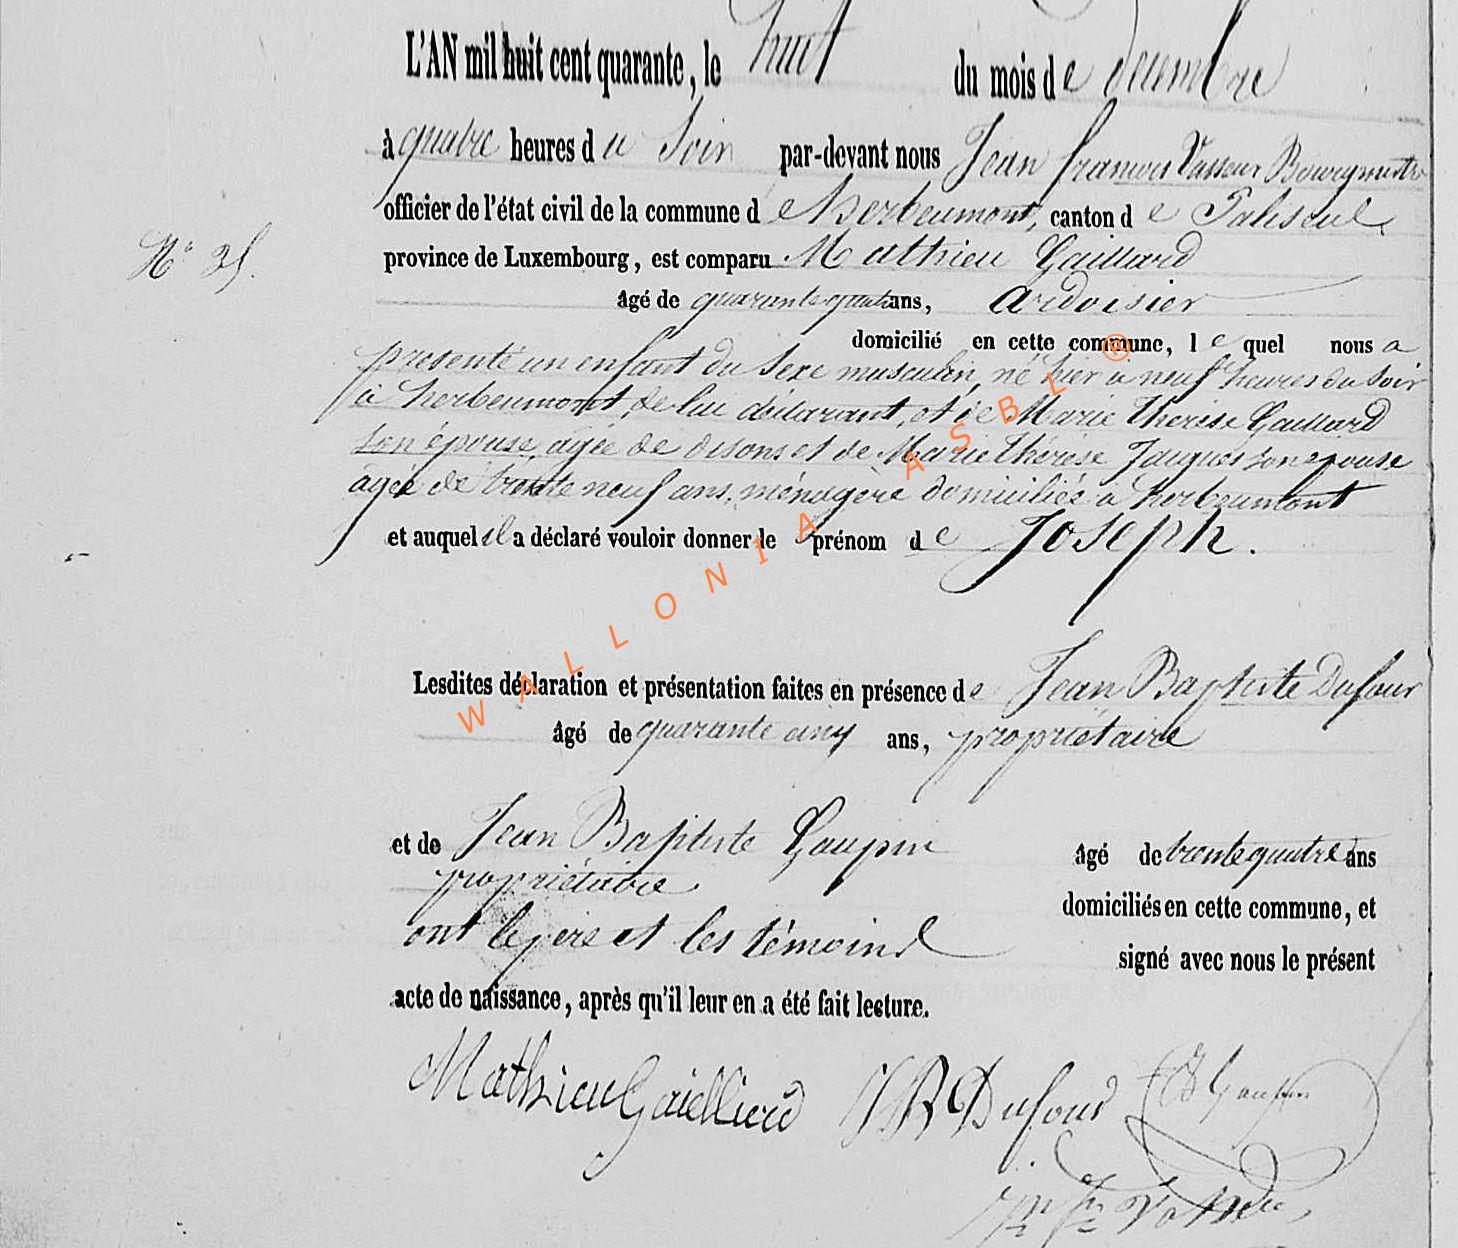 L'AN mil huit cent quarante, le huit du mois de décembre
à quatre heures du Soir par-devant nous Jean françois Vasseur Bourgmestre
officier de l'état civil de la commune de herbeumont, canton de Paliseul
N° 35.
province de Luxembourg, est comparu Mathieu Gaillard
âgé de quarante quatre ans, ardoisier
domicilié en cette commune, lequel nous a
présenté un enfant du sexe masculin, né hier à neuf heures du soir
à herbeumont, de lui déclarant, et de Marie thérèse Gaillard
son épouse, agée de disons et de Marie thérèse Jacques son épouse
agée de trente neuf ans, ménagère domiciliée a herbeumont
et auquel il a déclaré vouloir donner le prénom de Joseph.
Lesdites déclaration et présentation faites en présence de Jean Baptiste Dufour
âgé de quarante cinq ans, propriétaire
et de Jean Baptiste Gaupin âgé de trente quatre ans
propriétaire domiciliés en cette commune, et
ont le père et les témoins signé avec nous le présent
acte de naissance, après qu'il leur en a été fait lecture.
Mathieu Gaielliard JB Dufour JB Gaupin
WALLONIA ASBL ®